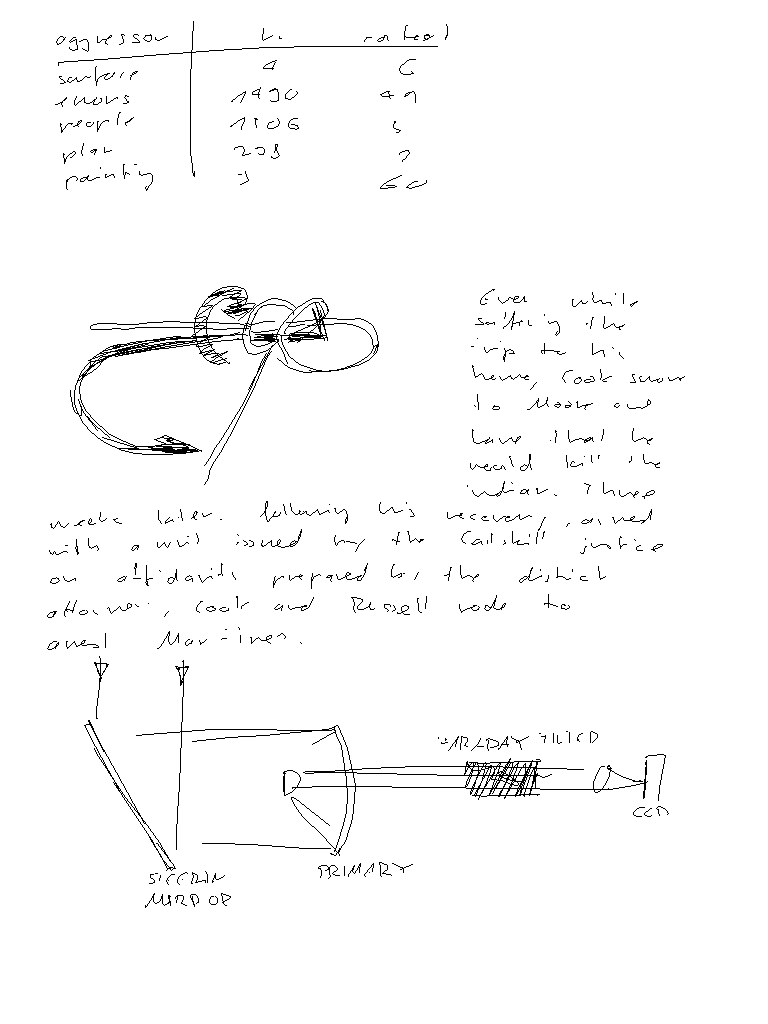 aggressor
surface 4 6
errors 1490 49
people 1506 5
plan
painting 60
Even while
suffering the
trip to his
home, Cook swore
to Moore and
that he
would kill the
Indian. Three
weeks later. following his recovery, armed
with a writ issued by the Catskill justice
on affidavits prepared by the district
attorney, Cook and Russell rode to
arrest Martines.
FARADAY FILTER
CCD
PRIMARY
STEERING
MIRROR